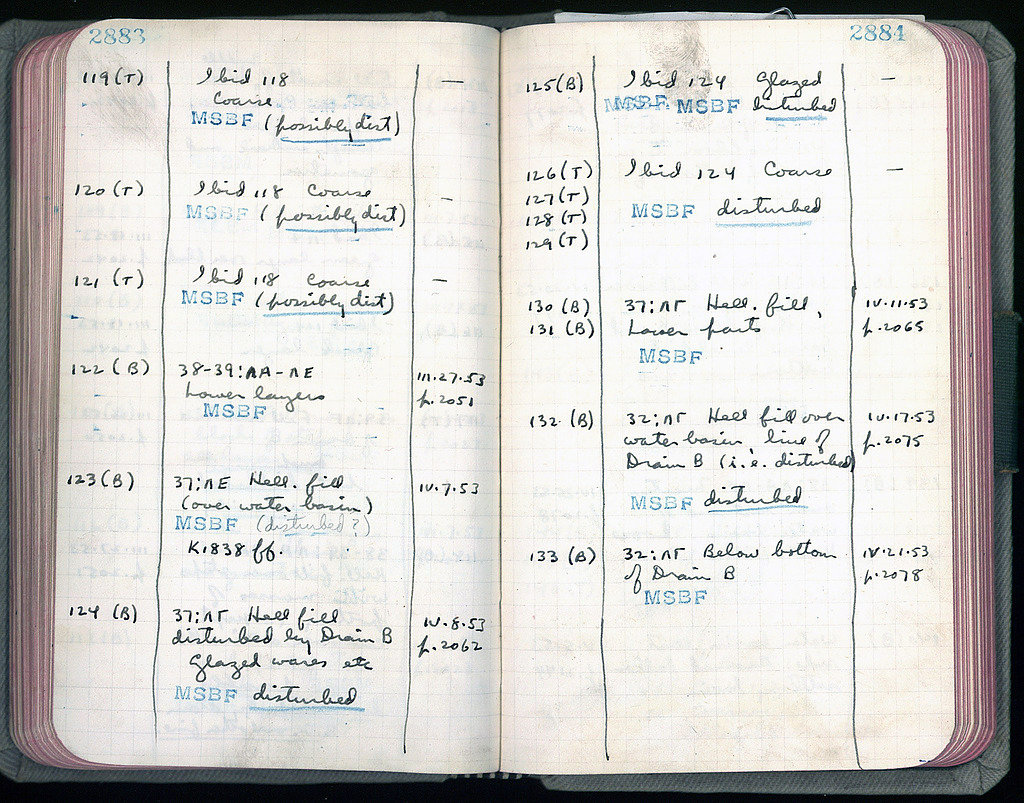 2883
119 (T) Ibid 118 —
Coarse
MSBF (possibly dist)
120 (T) Ibid 118 Coarse —
MSBF (possibly dist)
121 (T) Ibid 118 Coarse —
MSBF (possibly dist)
122 (B) 38-39:ΛΑ-ΛΕ III.27.53
Lower layers p.2051
MSBF
123 (B) 37:ΛΕ Hell. fill IV.7.53
(over water basin)
MSBF (disturbed?)
K.1838 ff.
124 (B) 37:ΛΓ Hell fill IV.8.53
disturbed by Drain B p.2062
Glazed wares etc
MSBF disturbed
2884
125 (B) Ibid 124 Glazed —
MSBF MSBF disturbed
126 (T) Ibid 124 Coarse —
127 (T)
128 (T) MSBF disturbed
129 (T)
130 (B) 37:ΛΓ Hell. fill, IV.11.53
131 (B) Lower parts p.2065
MSBF
132 (B) 32:ΛΓ Hell fill over IV.17.53
water basin, line of p.2075
Drain B (i.e. disturbed)
MSBF disturbed
133 (B) 32:ΛΓ Below bottom IV.21.53
of Drain B p.2078
MSBF